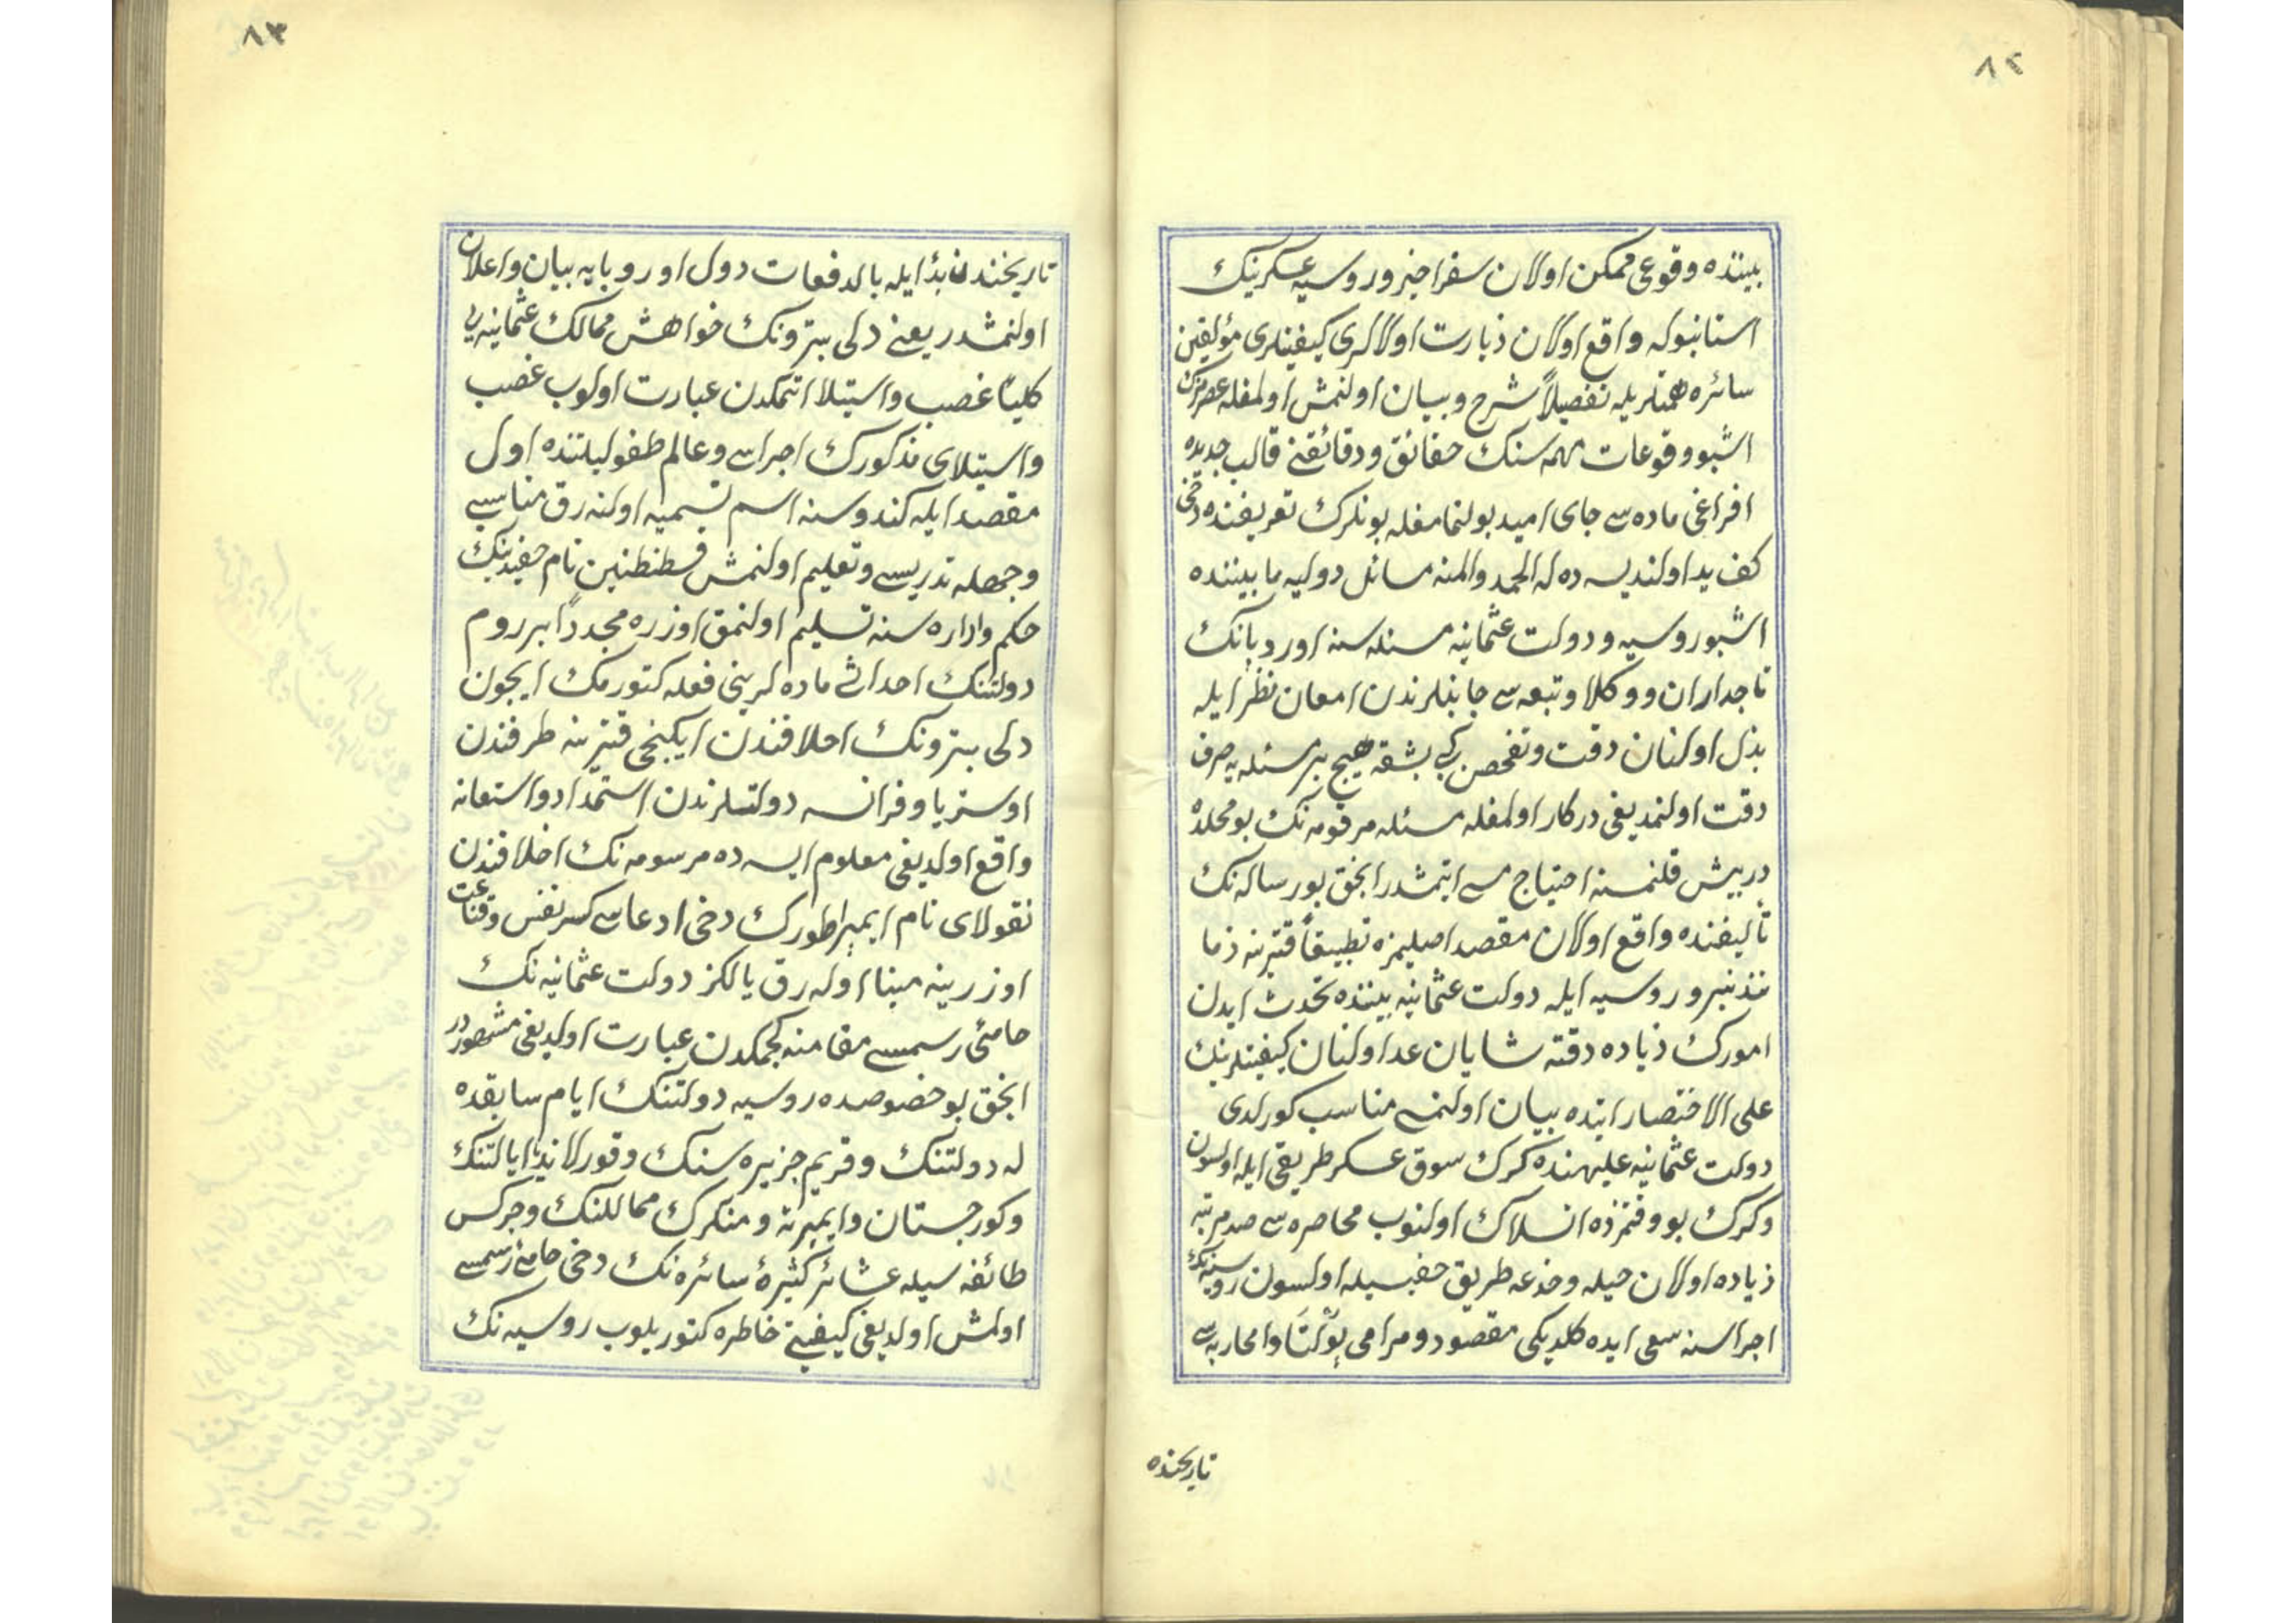 ٨٢
بیننده وقوعی ممکن اولان سفر اخیر و روسیه عسكرینك
استانبوله واقع اولان زیارت اولالری کیفیتلری مؤلفین
سائره همتلریله تفصیلاً شرح و بیان اولنمش اولمغله عصرمزك
اشبو وقوعات مهمه سنك حقائق ودقائقنی قالب جدیده
افراغی ماده سی جای امید بولنمامغله بونلرك تعریفنده دخی
كف ید اولندیسه ده له الحمد والمنه مسائل دولیه مابیننده
اشبو روسیه و دولت عثمانیه مسئله سنه اوروپانك
تاجداران و وكلا و تبعه سی جانبلرندن امعان نظر ایله
بذل اولنان دقت و تفحص كبی بشقه هیچ بر مسئله یه صرف
دقت اولنمدیغی دركار اولمغله مسئله مرقومه نك بو محلده
درپیش قلنمسنه احتیاج مسی ایتمشدر انجق بو رساله نك
تألیفنده واقع اولان مقصد اصلیمزه تطبیقاً قترینه زما
نندنبرو روسیه ایله دولت عثمانیه بیننده تحدث ایدن
امورك زیاده دقته شایان عد اولنان كیفیتلرینك
علی الاختصار اتیده بیان اولنمسی مناسب كورلدی
دولت عثمانیه علیهنده كرك سوق عسكر طریقی ایله اولسون
و كرك بو وقتمزده انسلاك اولنوب محاصره سی صد مرتبه
زیاده اولان حیله وخدعه طریق خفیسیله اولسون روسیه نك
اجراسنه سعی ایده كلدیكی مقصود و مرامی پولتاوا محاربه سی
تاریخنده
٨٣
تاریخندن بدأ ایله بالدفعات دول اوروپایه بیان واعلان
اولنمشدر یعنی دلی پترونك خواهش ممالك عثمانیه یی
كلیاً غصب واستیلا اتمكدن عبارت اولوب غصب
واستیلای مذكورك اجراسی وعالم طفولیتنده اول
مقصد ایله كندوسنه اسم تسمیه اولنه رق مناسبی
وجهله تدریس وتعلیم اولنمش قسطنطنین نام حفیدینك
حكم واداره سنه تسلیم اولنمق اوزره مجدداً بر روم
دولتنك احداثی ماده لرینی فعله كتورمك ایچون
دلی پترونك اخلافندن ایكنجی قترینه طرفندن
اوستریا وفرانسه دولتلرندن استمداد واستعانه
واقع اولدیغی معلوم ایسه ده مرسومه نك اخلافندن
نقولای نام ایمپراطورك دخی ادعاسی كسر نفس وقناعت
اوزرینه مبنا اوله رق یالكز دولت عثمانیه نك
حامئ رسمیسی مقامنه كچمكدن عبارت اولدیغی مشهوردر
انجق بو خصوصده روسیه دولتنك ایام سابقده
له دولتنك وقریم جزیره سنك وقورلاندیا ایالتنك
وكورجستان وایمیرته ومنكرك ممالكنك وچركس
طائفه سیله عشائر كثیرۀ سائره نك دخی حامئ رسمیسی
اولمش اولدیغی كیفیتی خاطره كتوریلوب روسیه نك